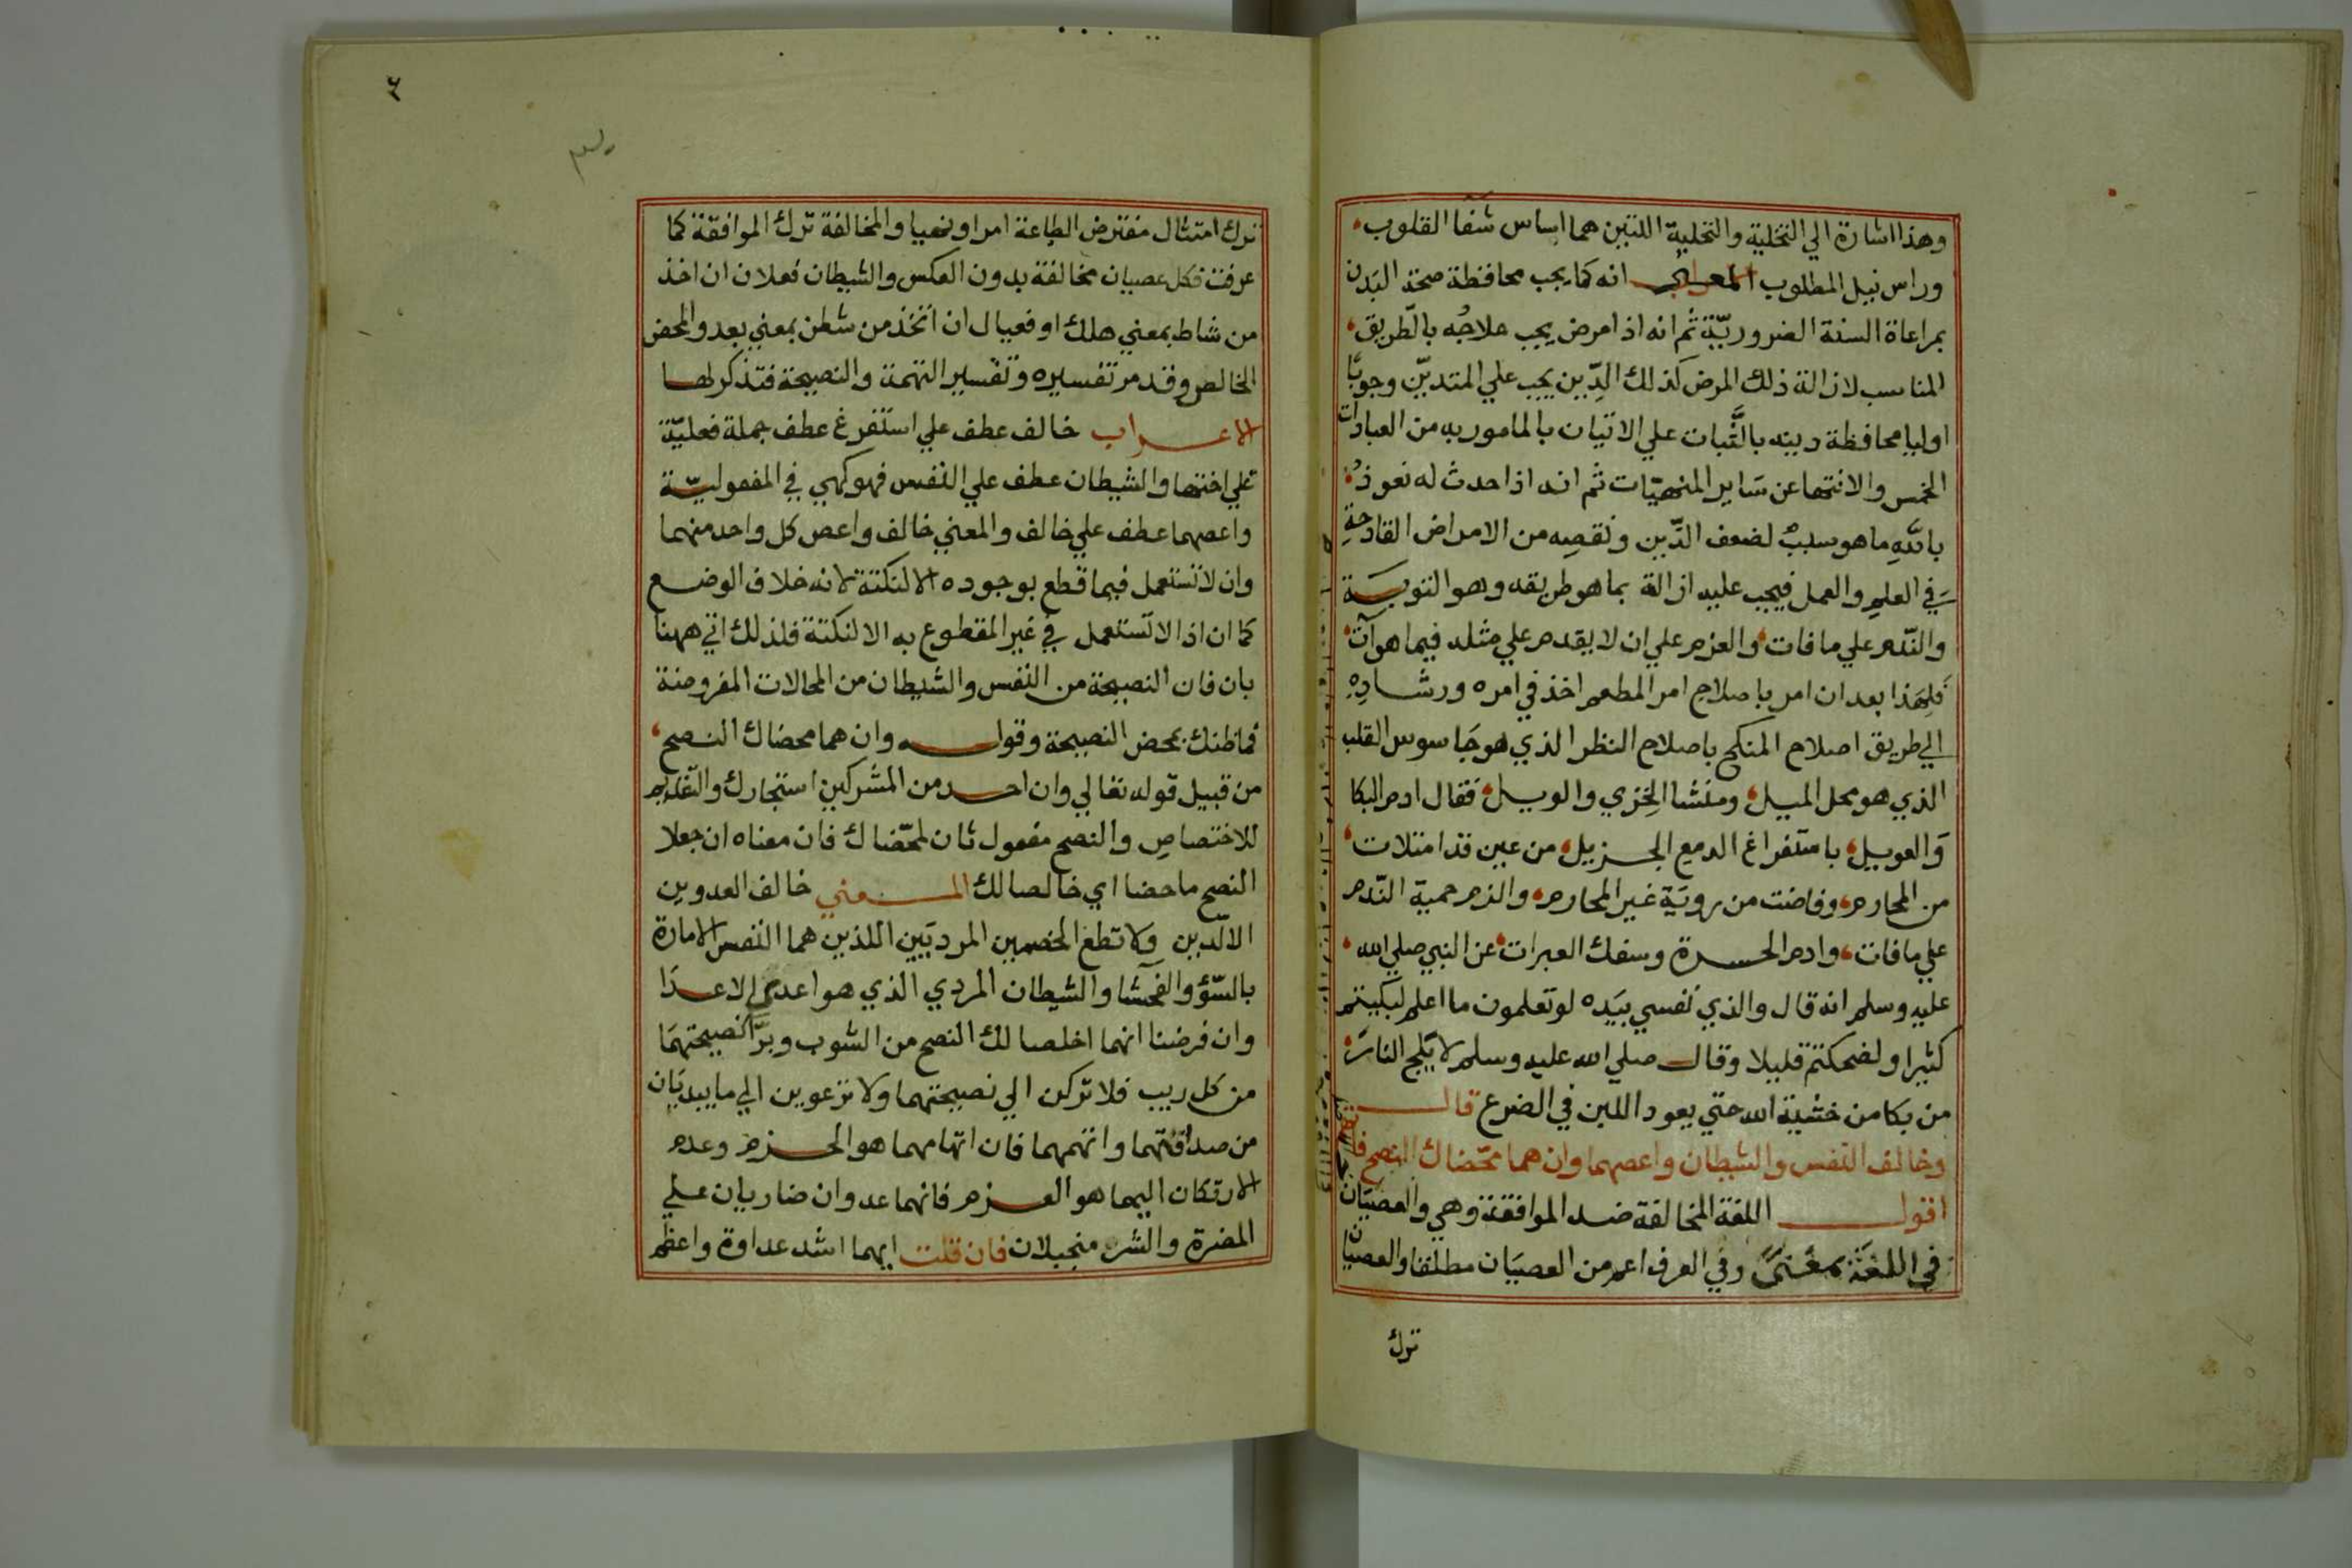 وهذا اشارة الي التخلية والتحلية اللتين هما اساس شفا القلوب
وراس نيل المطلوب المعني انه كما يجب محافظة صحة البدن
بمراعاة السنة الضروريّة ثم انه اذا مرض يجب علاجه بالطريق
المناسب لازالة ذلك المرض كذلك الدّين يجب علي المتديّن وجوبًا
اوليا محافظة دينه بالثَّبات علي الاتيان بالمامور به من العبادات
الخمس والانتها عن سَاير المنهيّات ثم انه اذا حدث له نعوذ
باللهِ ما هو سببٌ لضعف الدّين ونقصِه من الامراض القادحةِ
في العلمِ والعمل فيجب عليه ازالة بما هو طريقه وهو التوبَة
والنّدم علي ما فات والعزم علي ان لا يقدم علي مثله فيما هو آت
فلِهَذا بعد ان امر باصلاح امر المطعم اخذ في امره ورشادِهِ
الي طريق اصلاح المنكح باصلاح النظر الذي هو جَاسوس القلب
الذي هو محل الميل ومنشا الخِزي والويل فقال ادم البكا
وَالعويل باستفراغ الدمع الجزيل من عين قد امتلات
من المحارم وفاضت من رويَة غير المحارم والزم حمية النّدم
علي ما فات وادم الحسرة وسفك العبرات عن النبي صلي الله
عليه وسلم انه قال والذي نفسي بيَده لو تعلمون ما اعلم لبكيتم
كثيرا ولضحكتم قليلا وقال صلي الله عليه وسلم لا يَلج النارَ
من بكا من خشية الله حتي يعود اللبن في الضرع قال
وخالف النفس والشيطان واعصهما وان هما محّضاك النصح فاتهم
اقول اللغة المخالفة ضد الموافقة وهي والعصيَان
في اللغَة بمعنًى وفي العرف اعم من العصيَان مطلقا والعصيَان
ترك
٤
ترك امتثال مفترض الطاعة امرا ونهيا والمخالفة ترك الموافقة كما
عرفت فكل عصيان مخالفة بدون العكس والشيطان فعلان ان اخذ
من شاط بمعني هلك او فيعال ان اتخذ من شطن بمعني بعد والمحض
الخالص وقد مر تفسيره وتفسير التهمة والنصيحة فتذكر لها
الاعراب خالف عطف علي استفرغ عطف جملة فعليّة
علي اختها والشيطان عطف علي النفس فهو كهي في المفعوليّة
واعصهما عطف علي خالف والمعني خالف واعص كل واحد منهما
وان لا تستعمل فيما قطع بوجوده الا لنكتة لانه خلاف الوضع
كما ان اذا لا تستعمل في غير المقطوع به الا لنكتة فلذلك اتي ههنا
بان فان النصيحة من النفس والشيطان من المحالات المفروضة
فما ظنك بمحض النصيحة وقوله وان هما محضاك النصح
من قبيل قوله تعالي وان احد من المشركين استجارك والتقديم
للاختصاص والنصح مفعول ثان لمحّضاك فان معناه ان جعلا
النصح ماحضا اي خالصا لك المعني خالف العدوين
الالدّين ولا تطع الخصمين المرديَين اللذين هما النفس الامارة
بالسّوٓ والفحشا والشيطان المردي الذي هو اعدي الاعدَا
وان فرضنا انهما اخلصا لك النصح من الشوب وبرَّا نصيحتهمَا
من كل ريب فلا تركن الي نصيحتهما ولا ترعوين الي ما يبديَان
من صداقتهما واتهمهما فان اتهامهما هو الحزم وعدم
الارتكان اليهما هو العزم فانهما عدوان ضاريان علي
المضرة والشر منجبلان فان قلت ايهما اشد عداوة واعظم